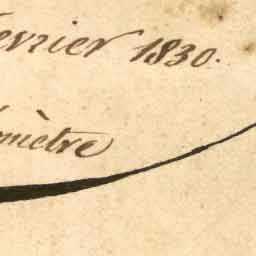 évrier 1830.
mètre